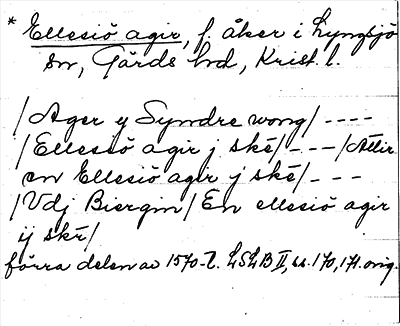 * Ellesiö agir, f. åker i Lyngsjö
sn, Gärds hd, Krist. l.
/Ager y Syndre wong/ ----
/Ellesiö agir j skē/ --- /Atter
en Ellesiö agir j skē/ ---
/Vdj Biergin/ En ellesiö agir
ij skē/
förra delen av 1570-t. LSLB II, ss. 170, 171. orig.